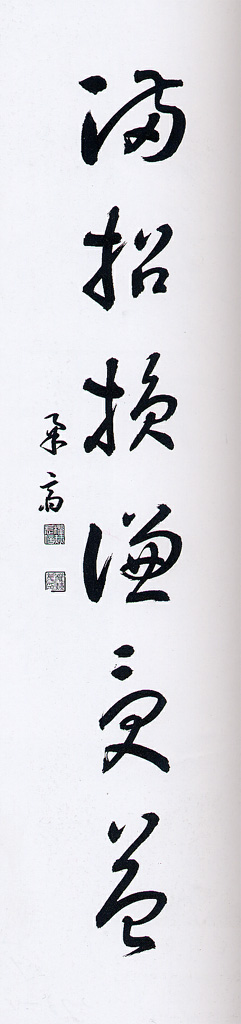 满招损谦受益